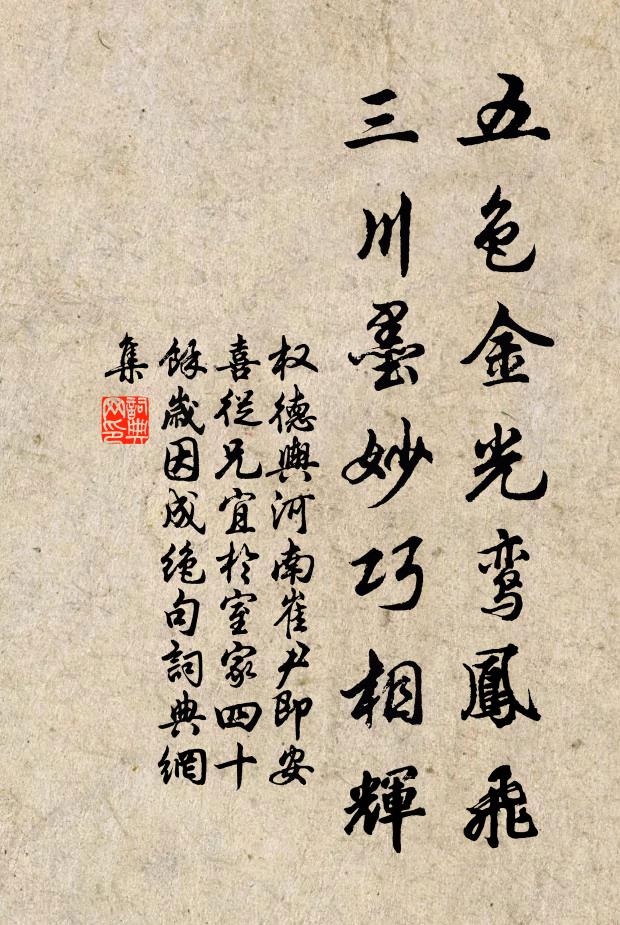 五色金光鸾鳳飛
三川墨妙巧相輝
权德輿河南崔尹即安
喜從兄宜於室家四十
餘歲因成绝句詞典網
集
詞典
网印